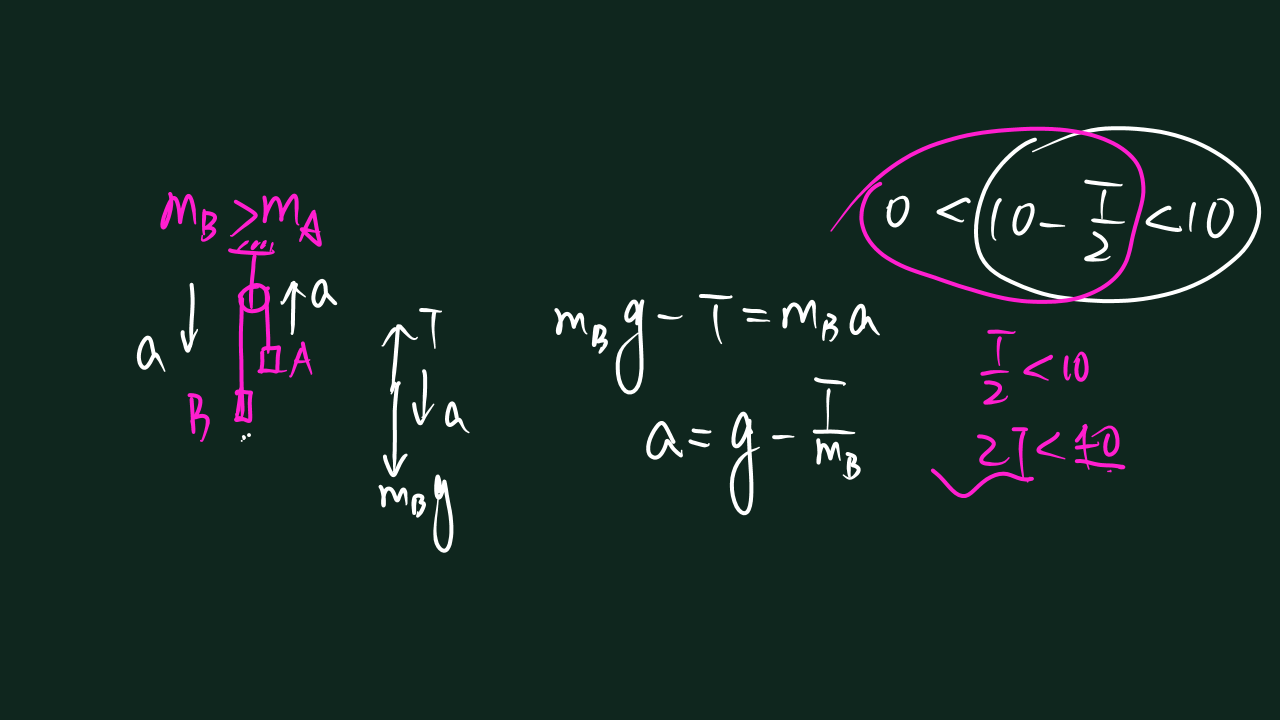 m_B > m_A
a
a
A
B
T
a
m_B g
m_B g - T = m_B a
a = g - T/m_B
0 < 10 - T/2 < 10
T/2 < 10
2T < 40